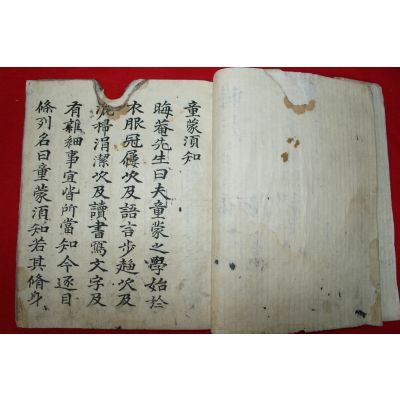 童蒙須知
晦菴先生曰夫童蒙之學始於
衣服冠屨次及語言步趍次及
洒掃涓潔次及讀書寫文字及
有雜細事宜皆所當知今逐目
條列名曰童蒙須知若其脩身